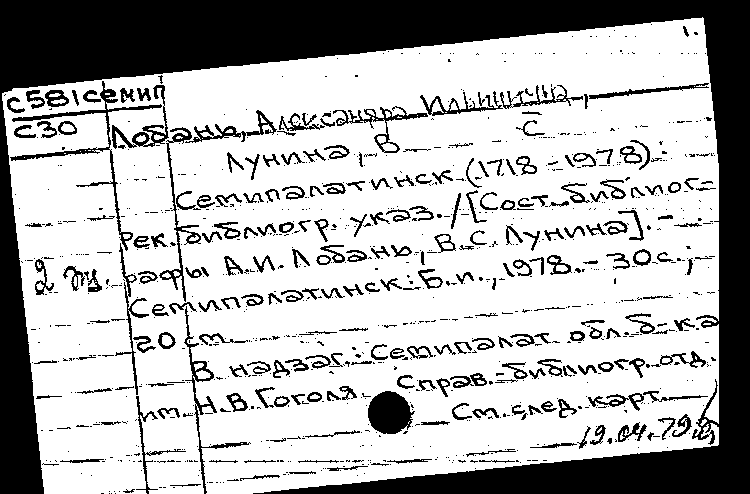 1.
С581семип
С30
Лобань, Александра Ильинична,
Лунина, В. С.
Семипалатинск (1718-1978):
Рек. библиогр. указ. / [Сост. библиог-
рафы А.И. Лобань, В.С. Лунина]. -
2 экз.
Семипалатинск: Б.и., 1978. - 30 с.;
20 см.
В надзаг.: Семипалат. обл. б-ка
им. Н.В. Гоголя. Справ.-библиогр. отд.
См. след. карт.
19.04.79